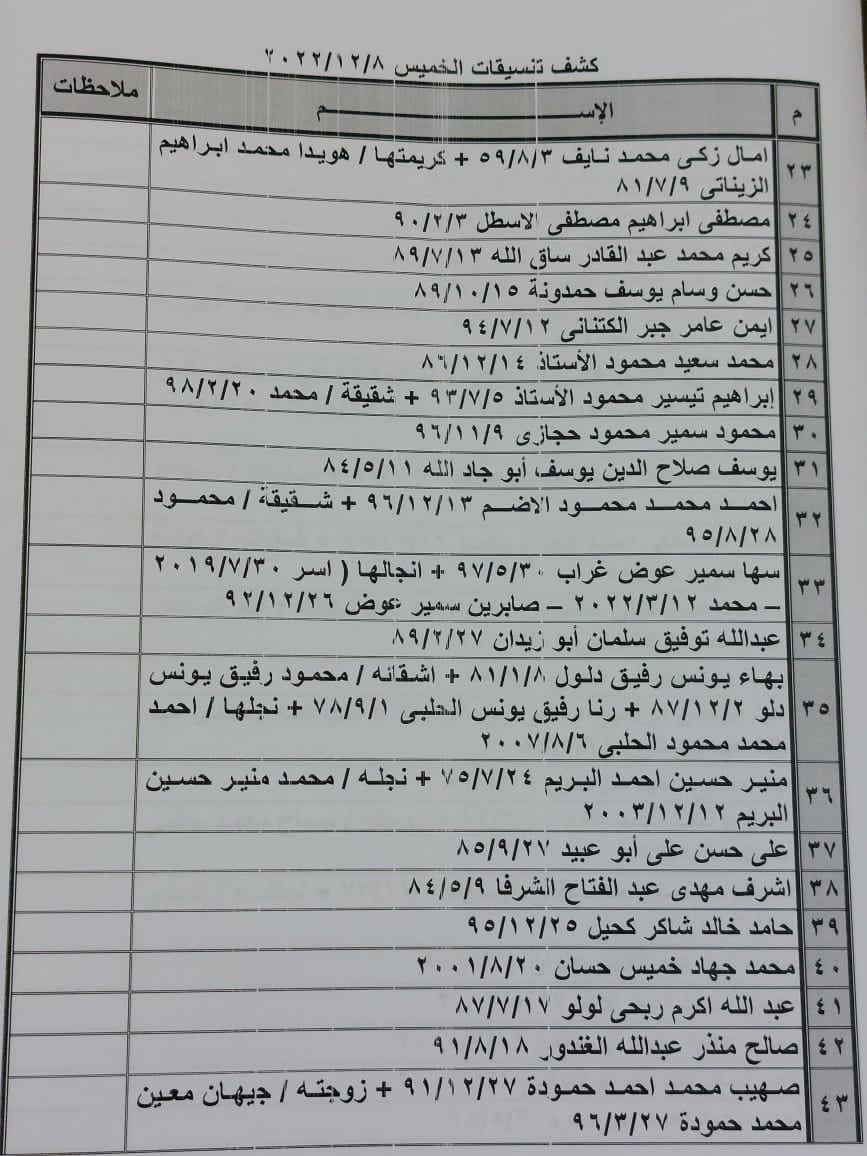 كشف تنسيقات الخميس ٢٠٢٢/١٢/٨
م الإســـــــــم ملاحظات
٢٣ امال زكى محمد نايف ٥٩/٨/٣ + كريمتها / هويدا محمد ابراهيم
الزيناتى ٨١/٧/٩
٢٤ مصطفى ابراهيم مصطفى الاسطل ٩٠/٢/٣
٢٥ كريم محمد عبد القادر ساق الله ٨٩/٧/١٣
٢٦ حسن وسام يوسف حمدونة ٨٩/١٠/١٥
٢٧ ايمن عامر جبر الكتنانى ٩٤/٧/١٢
٢٨ محمد سعيد محمود الأستاذ ٨٦/١٢/١٤
٢٩ إبراهيم تيسير محمود الأستاذ ٩٣/٧/٥ + شقيقة / محمد ٩٨/٢/٢٠
٣٠ محمود سمير محمود حجازى ٩٦/١١/٩
٣١ يوسف صلاح الدين يوسف أبو جاد الله ٨٤/٥/١١
٣٢ احمد محمد محمود الاضم ٩٦/١٢/١٣ + شقيقة / محمود
٩٥/٨/٢٨
٣٣ سها سمير عوض غراب ٩٧/٥/٣٠ + انجالها ( اسر ٢٠١٩/٧/٣٠
– محمد ٢٠٢٢/٣/١٢ – صابرين سمير عوض ٩٢/١٢/٢٦
٣٤ عبدالله توفيق سلمان أبو زيدان ٨٩/٢/٢٧
٣٥ بهاء يونس رفيق دلول ٨١/١/٨ + اشقائه / محمود رفيق يونس
دلو ٨٧/١٢/٢ + رنا رفيق يونس الحلبى ٧٨/٩/١ + نجلها / احمد
محمد محمود الحلبى ٢٠٠٧/٨/٦
٣٦ منير حسين احمد البريم ٧٥/٧/٢٤ + نجله / محمد منير حسين
البريم ٢٠٠٣/١٢/١٢
٣٧ على حسن على أبو عبيد ٨٥/٩/٢٧
٣٨ اشرف مهدى عبد الفتاح الشرفا ٨٤/٥/٩
٣٩ حامد خالد شاكر كحيل ٩٥/١٢/٢٥
٤٠ محمد جهاد خميس حسان ٢٠٠١/٨/٢٠
٤١ عبد الله اكرم ربحى لولو ٨٧/٧/١٧
٤٢ صالح منذر عبدالله الغندور ٩١/٨/١٨
٤٣ صهيب محمد احمد حمودة ٩١/١٢/٢٧ + زوجته / جيهان معين
محمد حمودة ٩٦/٣/٢٧